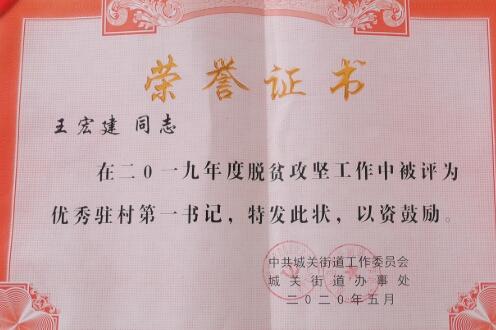 荣誉证书
王宏建 同志
在二0一九年度脱贫攻坚工作中被评为
优秀驻村第一书记，特发此状，以资鼓励。
中共城关街道工作委员会
城关街道办事处
二〇二〇年五月